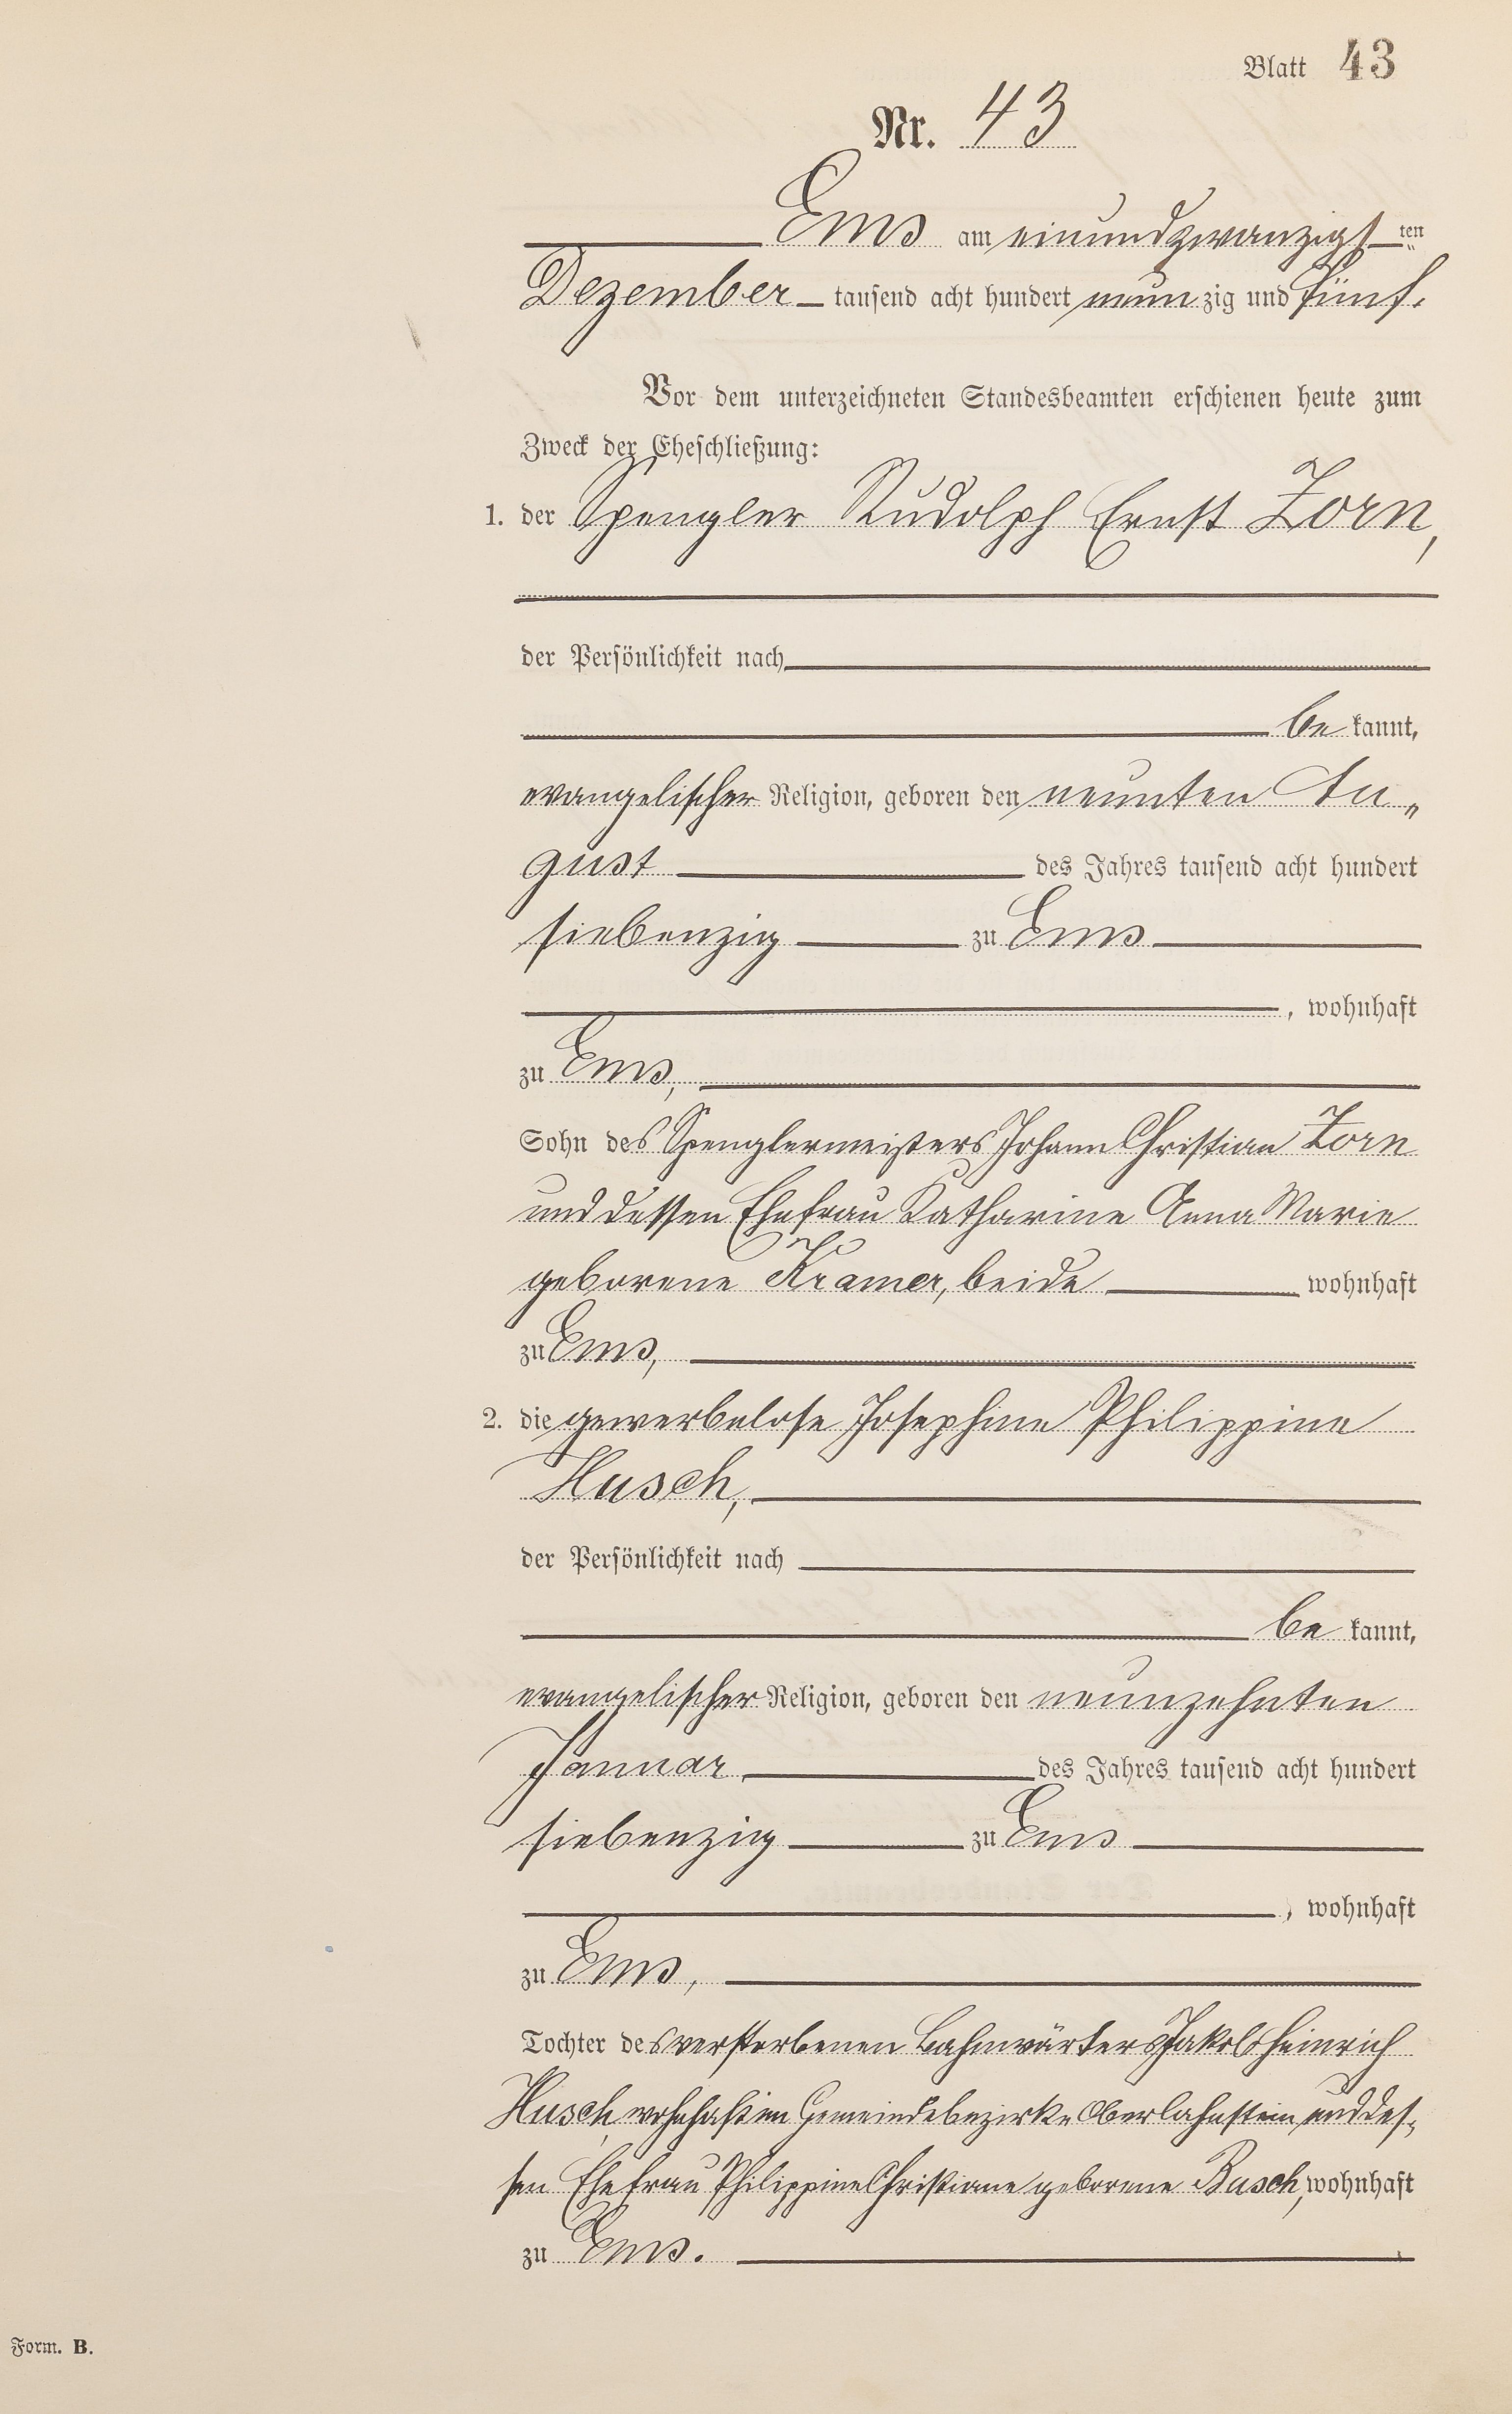 Blatt 43
Nr. 43
Ems am einundzwanzigsten
Dezember tausend acht hundert neunzig und fünf.
Vor dem unterzeichneten Standesbeamten erschienen heute zum
Zweck der Eheschließung:
1. der Spengler Rudolph Ernst Zorn,
der Persönlichkeit nach
be kannt,
evangelischer Religion, geboren den neunten Au„
gust des Jahres tausend acht hundert
siebenzig zu Ems
, wohnhaft
zu Ems,
Sohn des Spenglermeisters Johann Christian Zorn
und dessen Ehefrau Katharine Anna Marie
geborene Kramer, beide wohnhaft
zu Ems,
2. die gewerbelose Josephine Philippine
Husch,
der Persönlichkeit nach
be kannt,
evangelischer Religion, geboren den neunzehnten
Januar des Jahres tausend acht hundert
siebenzig zu Ems
, wohnhaft
zu Ems,
Tochter des verstorbenen Bahnwärters Jakob Heinrich
Husch, wohnhaft im Gemeindebezirke Oberlahnstein und des„
sen Ehefrau Philippine Christiane geborene Busch, wohnhaft
zu Ems.
Form. B.